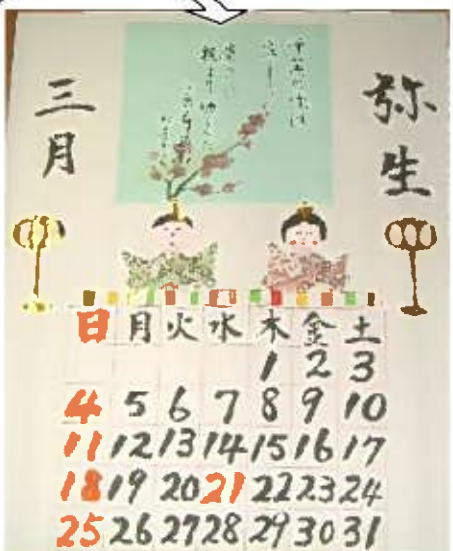 弥生
三月
日 月 火 水 木 金 土
1 2 3
4 5 6 7 8 9 10
11 12 13 14 15 16 17
18 19 20 21 22 23 24
25 26 27 28 29 30 31